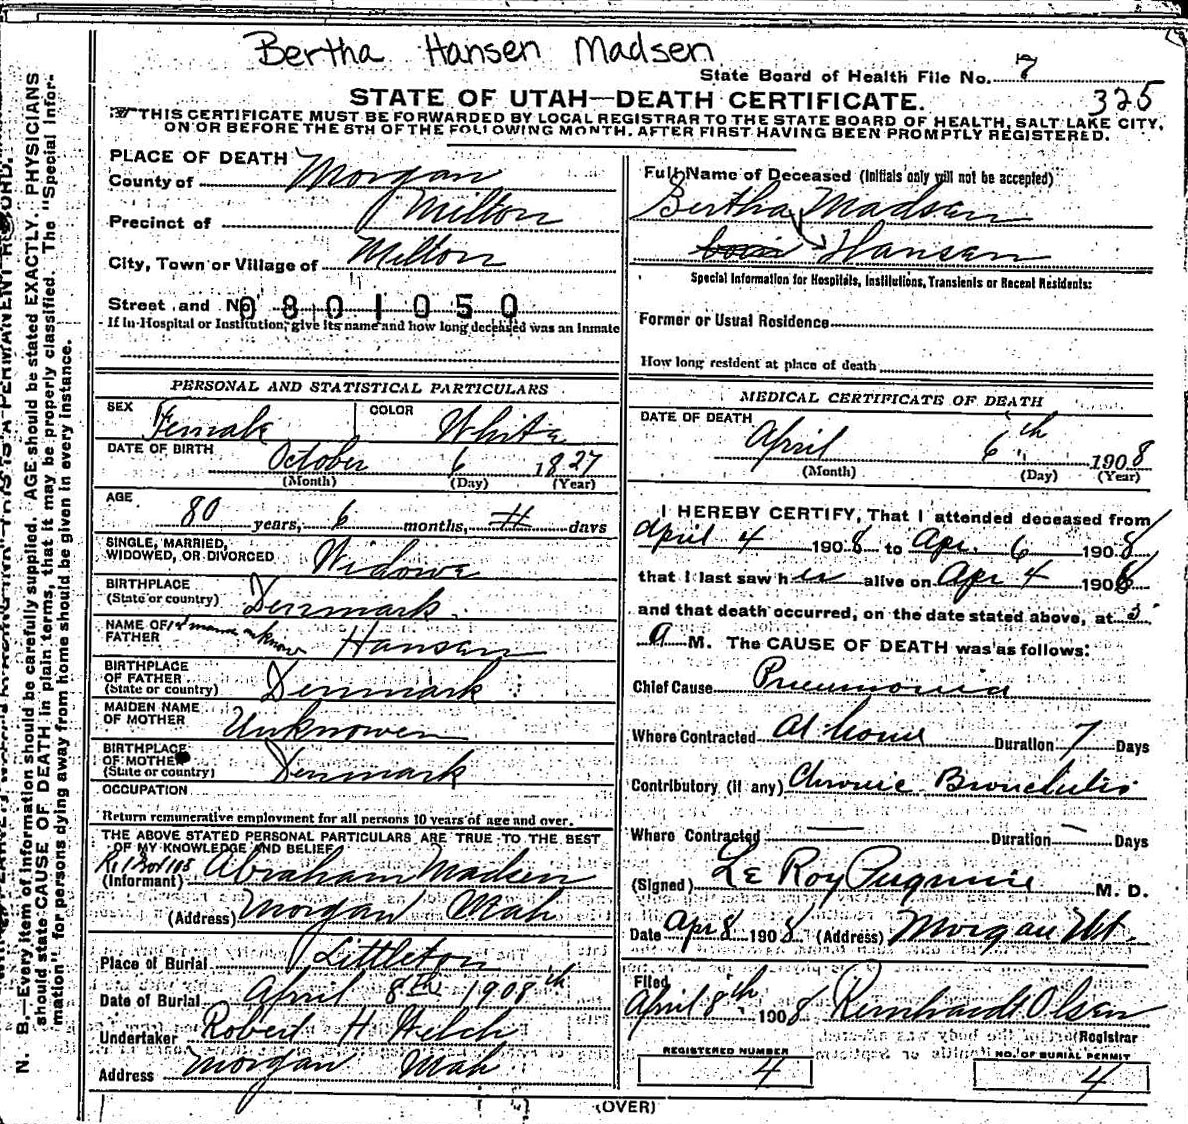 Bertha Hansen Madsen
State Board of Health File No. 7
325
STATE OF UTAH—DEATH CERTIFICATE.
THIS CERTIFICATE MUST BE FORWARDED BY LOCAL REGISTRAR TO THE STATE BOARD OF HEALTH, SALT LAKE CITY,
ON OR BEFORE THE 5TH OF THE FOLLOWING MONTH, AFTER FIRST HAVING BEEN PROMPTLY REGISTERED.
PLACE OF DEATH
County of Morgan
Precinct of Milton
City, Town or Village of Milton
Street and No. 0801050
If in Hospital or Institution, give its name and how long deceased was an Inmate
PERSONAL AND STATISTICAL PARTICULARS
SEX Female COLOR White
DATE OF BIRTH October 6 1827
(Month) (Day) (Year)
AGE 80 years, 6 months, days
SINGLE, MARRIED,
WIDOWED, OR DIVORCED Widowe
BIRTHPLACE
(State or country) Denmark
NAME OF
FATHER Hansen
BIRTHPLACE
OF FATHER
(State or country) Denmark
MAIDEN NAME
OF MOTHER Unknowen
BIRTHPLACE
OF MOTHER
(State or country) Denmark
OCCUPATION
Return remunerative employment for all persons 10 years of age and over.
THE ABOVE STATED PERSONAL PARTICULARS ARE TRUE TO THE BEST
OF MY KNOWLEDGE AND BELIEF
(Informant) Abraham Madsen
(Address) Morgan Utah
Place of Burial Littleton
Date of Burial April 8th 1908th
Undertaker Robert H Welch
Address Morgan Utah
Full Name of Deceased (Initials only will not be accepted)
Bertha Madsen
Hansen
Special Information for Hospitals, Institutions, Transients or Recent Residents:
Former or Usual Residence
How long resident at place of death
MEDICAL CERTIFICATE OF DEATH
DATE OF DEATH
April 6th 1908
(Month) (Day) (Year)
I HEREBY CERTIFY, That I attended deceased from
April 4 1908 to Apr. 6 1908
that I last saw her alive on Apr 4 1908
and that death occurred, on the date stated above, at 5
A M. The CAUSE OF DEATH was as follows:
Chief Cause Pneumonia
Where Contracted At home Duration 7 Days
Contributory (if any) Chronic Bronchitis
Where Contracted Duration Days
(Signed) Le Roy Pugmire M. D.
Date Apr 8 1908 (Address) Morgan Ut.
Filed
April 8th 1908 Reinhardt Olsen
Registrar
REGISTERED NUMBER
4
NO. OF BURIAL PERMIT
4
(OVER)
N. B.—Every item of information should be carefully supplied. AGE should be stated EXACTLY. PHYSICIANS
should state CAUSE OF DEATH in plain terms, that it may be properly classified. The "Special Infor-
mation" for persons dying away from home should be given in every instance.